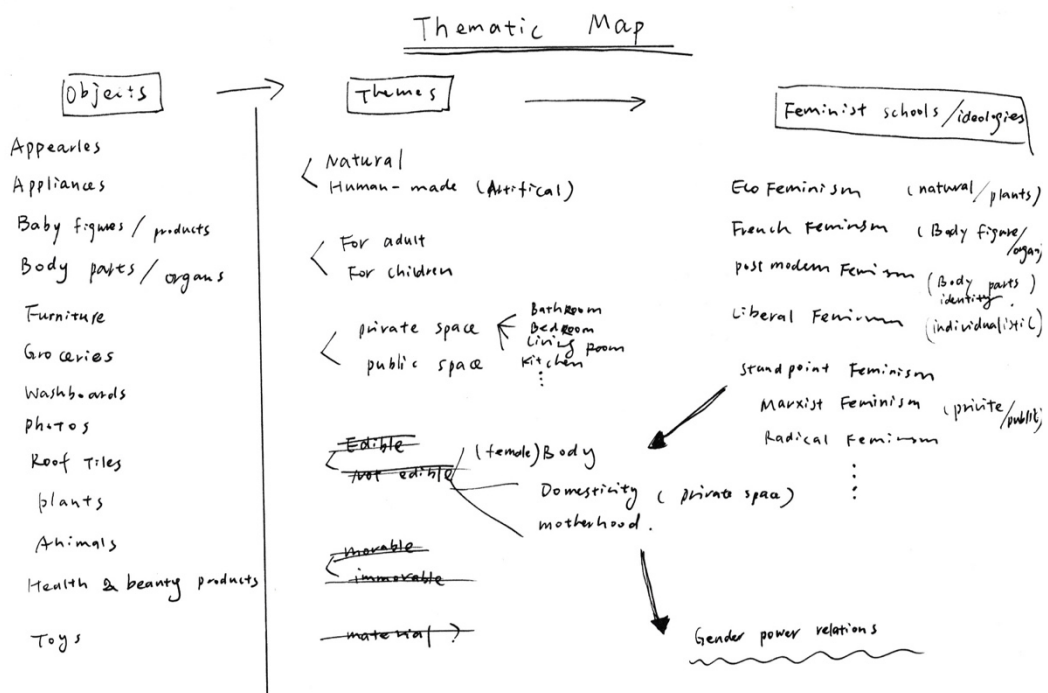 Thematic Map
Objects
Appearles
Appliances
Baby figures / products
Body parts / organs
Furniture
Groceries
Washboards
photos
Roof Tiles
plants
Animals
Health & beauty products
Toys
Themes
Natural
Human-made (Artifical)
For adult
For children
private space
public space
Bathroom
Bedroom
Living Room
Kitchen
⋮
Edible
Not edible
(female) Body
Domesticity (private space)
motherhood.
movable
immovable
material?
Feminist schools/ideologies
Eco Feminism (natural/plants)
French Feminism (Body figure/organ)
post modern Feminism (Body parts)
identity.
Liberal Feminism (individualistic)
standpoint Feminism
Marxist Feminism (privite/public)
Radical Feminism
⋮
Gender power relations